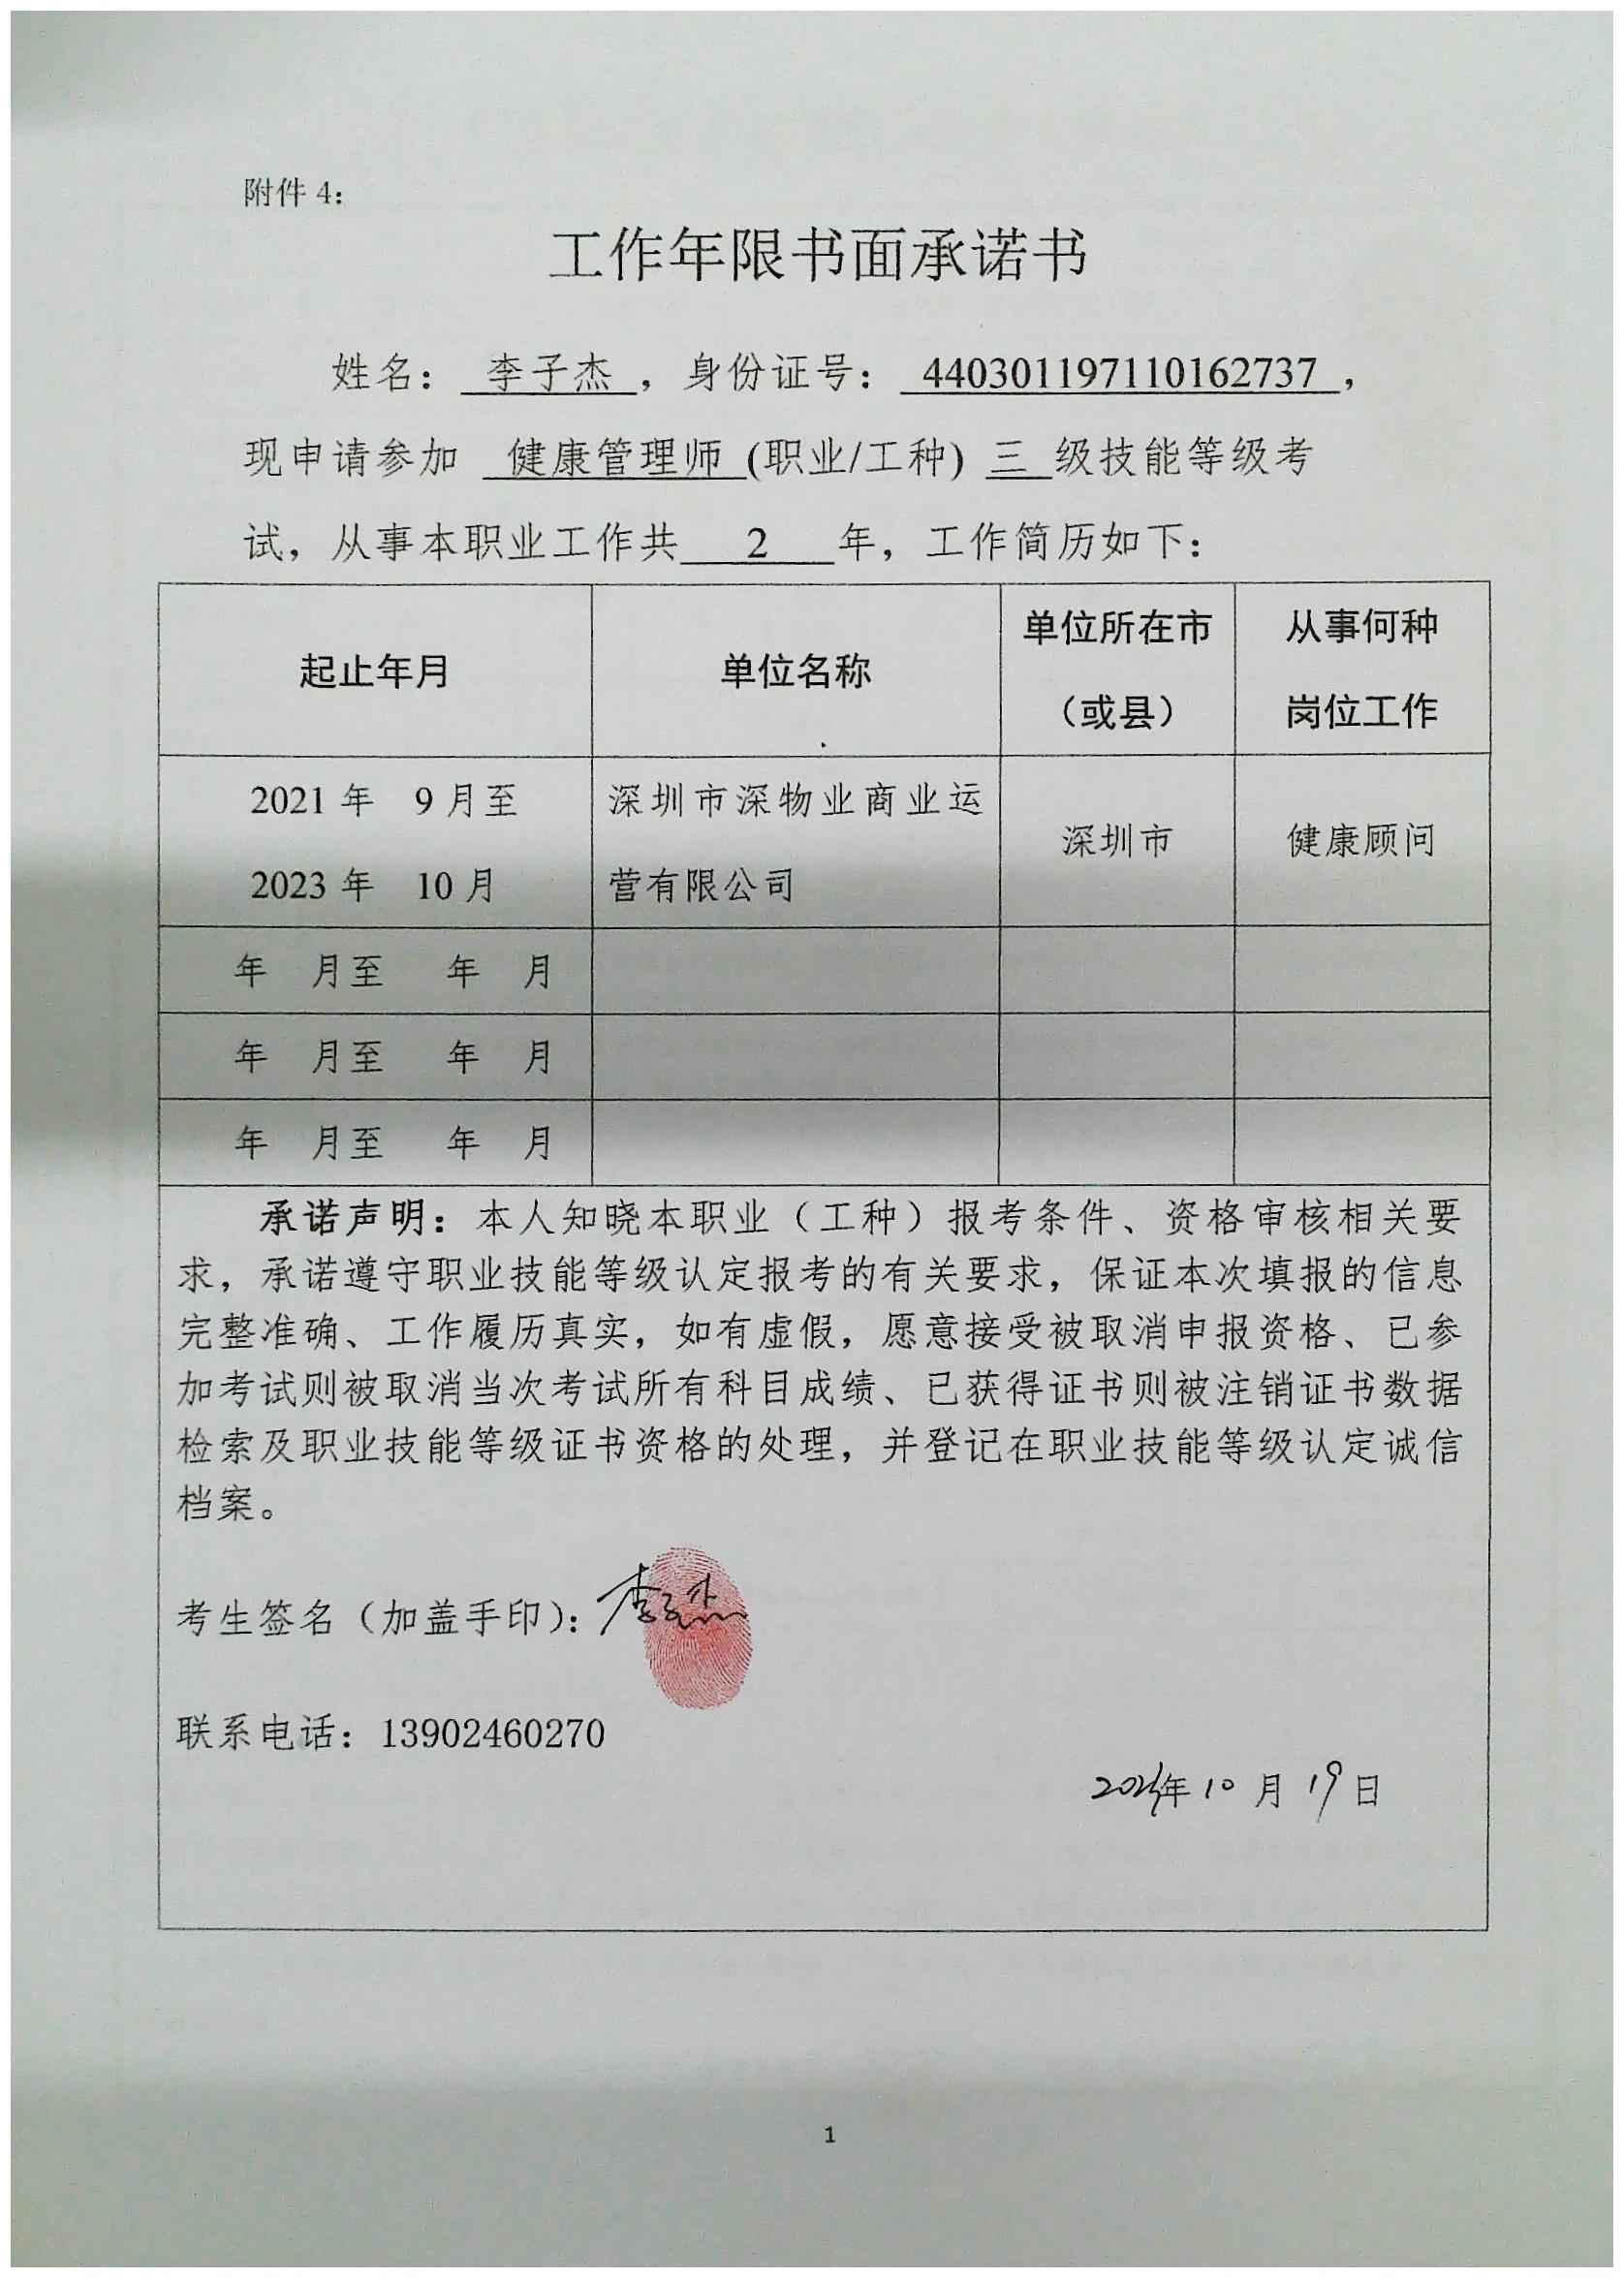 附件 4：
工作年限书面承诺书
姓名： 李子杰 ，身份证号： 440301197110162737 ，
现申请参加 健康管理师 (职业/工种) 三 级技能等级考
试，从事本职业工作共 2 年，工作简历如下：
起止年月 单位名称 单位所在市（或县） 从事何种岗位工作
2021 年 9 月至 深圳市深物业商业运
2023 年 10 月 营有限公司 深圳市 健康顾问
年 月至 年 月
年 月至 年 月
年 月至 年 月
承诺声明：本人知晓本职业（工种）报考条件、资格审核相关要
求，承诺遵守职业技能等级认定报考的有关要求，保证本次填报的信息
完整准确、工作履历真实，如有虚假，愿意接受被取消申报资格、已参
加考试则被取消当次考试所有科目成绩、已获得证书则被注销证书数据
检索及职业技能等级证书资格的处理，并登记在职业技能等级认定诚信
档案。
考生签名（加盖手印）：李子杰
联系电话：13902460270
年 10 月 19 日
1